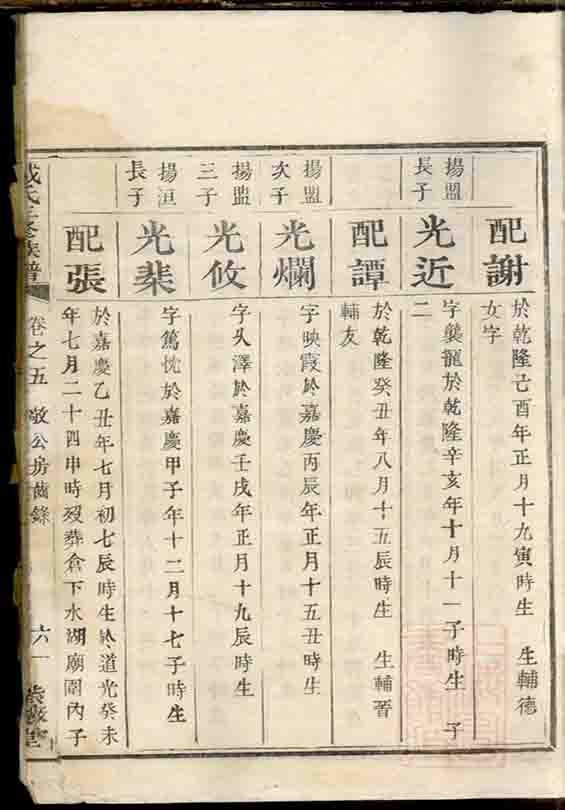 配謝
於乾隆己酉年正月十九寅時生　生輔德
女字
揚盟
長子
光近
字龑龍於乾隆辛亥年十月十一子時生　子
二
配譚
於乾隆癸丑年八月十五辰時生　生輔晉
輔友
揚盟
次子
光爛
字映霞於嘉慶丙辰年正月十五丑時生
揚盟
三子
光攸
字久澤於嘉慶壬戌年正月十九辰時生
揚洹
長子
光棐
字篤忱於嘉慶甲子年十二月十七子時生
配張
於嘉慶乙丑年七月初七辰時生於道光癸未
年七月二十四申時歿葬倉下水湖廟園內子
氏 修族譜
卷之五
敬公房齒錄
六一
堂